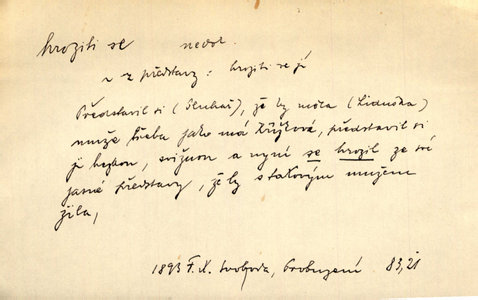 hroziti se nedok.
~ z představy: hroziti se jí
Představil si (Sluhač), že by měla (Liduška)
muže třeba jako má Křížková, představil si
ji hezkou, svižnou a nyní se hrozil ze své
jasné představy, že by s takovým mužem
žila,
1893 F. X. Svoboda, Probuzení 83,21